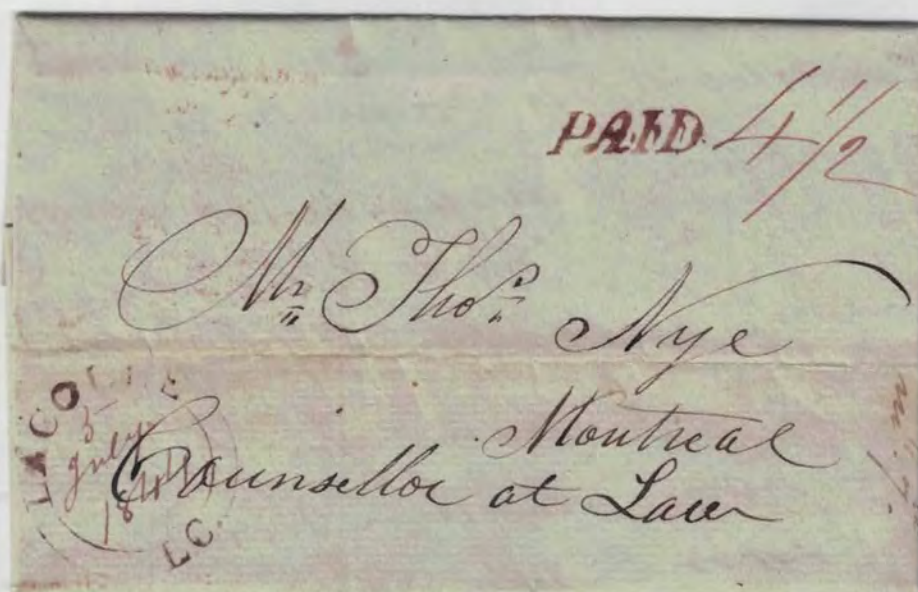 PAID 4 1/2
Mr Thos. Nye
Montreal
Counsellor at Law
LACOLLE
5
July
L.C.